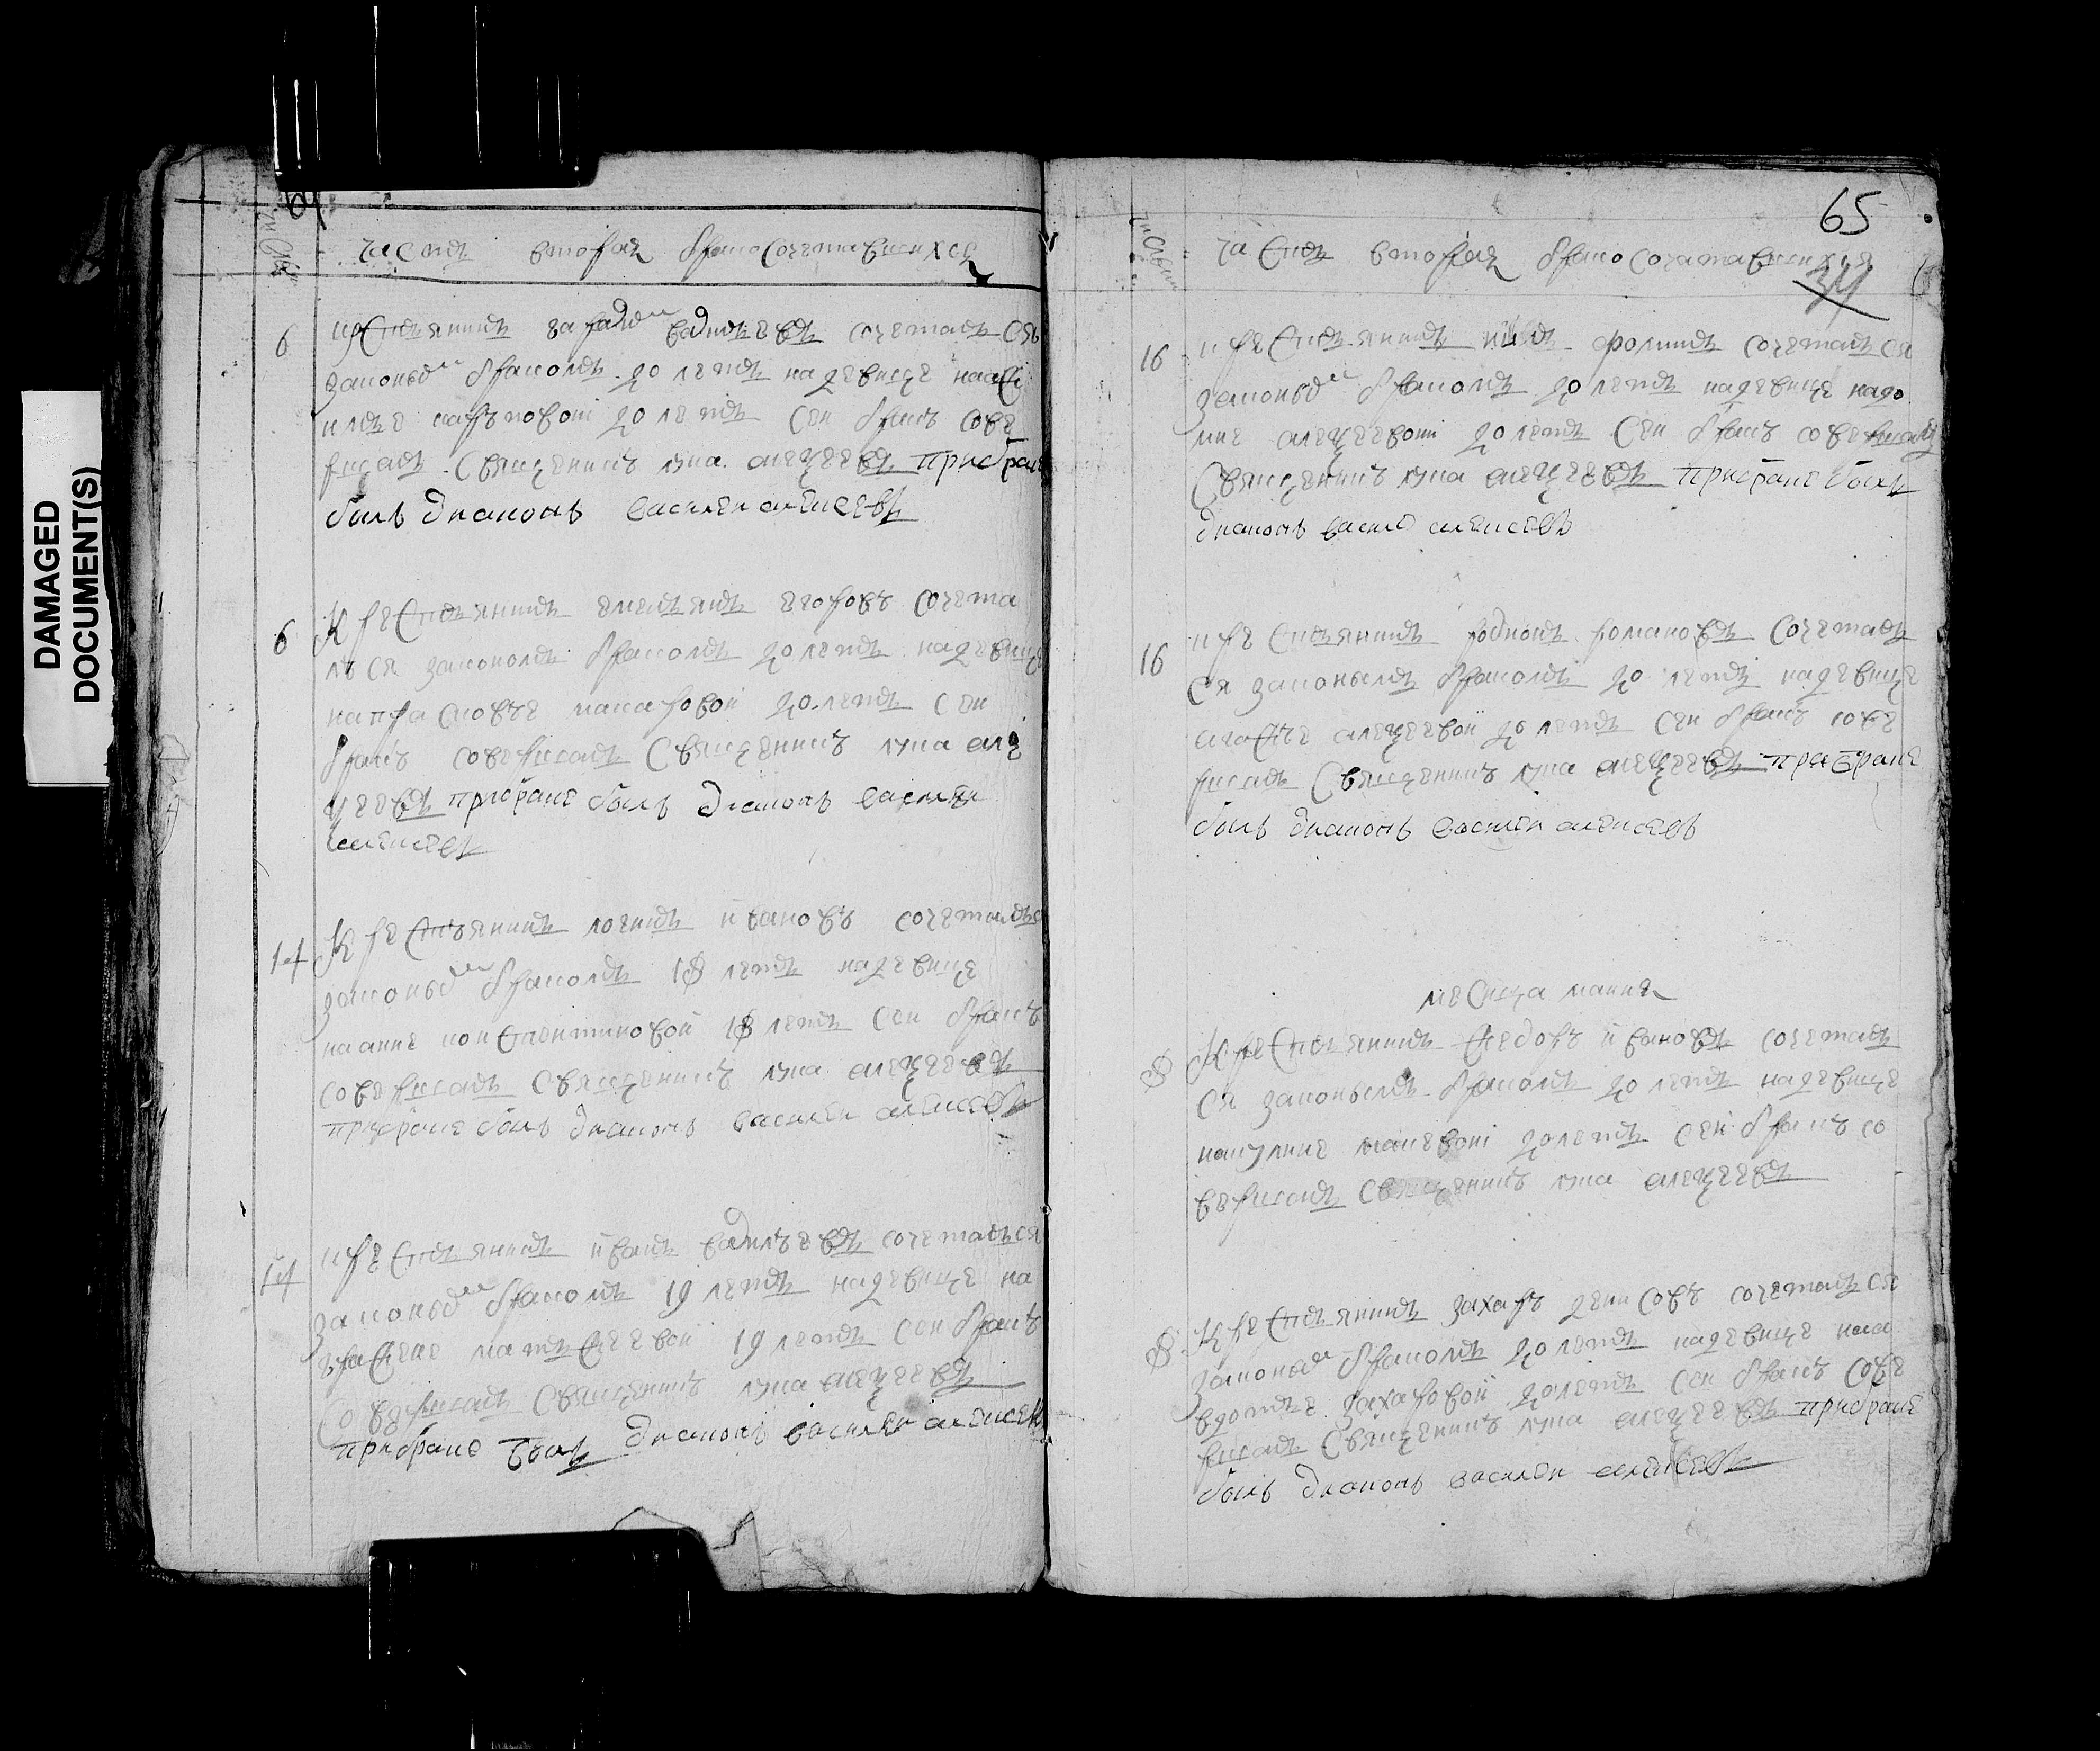 DAMAGED
DOCUMENT(S)
часть вторая бракосочетавшихся
6 крестьянинъ сочеталъ ся
законымъ бракомъ 20 летъ на девице
20 летъ сей бракъ сове
ршалъ священникъ лука алеѯеевъ при браке
былъ дияконъ василеи алексеевъ
6 Крестьянинъ емельянъ егоровъ сочета
лъ ся закономъ бракомъ 20 летъ на девице
на прасковье макаровой 20 летъ сей
бракъ совершалъ священникъ лука але
ѯеевъ при браке былъ дияконъ василеи
алексеевъ
14 Крестьянинъ логинъ ивановъ сочеталъ ся
законымъ бракомъ 18 летъ на девице
на анне константиновой 18 летъ сей бракъ
совершалъ священникъ лука алеѯеевъ
при браке былъ дияконъ василеи алексеевъ
14 крестьянинъ иванъ сочеталъ ся
законымъ бракомъ 19 летъ на девице на
матвеевой 19 летъ сей бракъ
совершалъ священникъ лука алеѯеевъ
при браке былъ дияконъ василеи алексеевъ
65
часть вторая бракосочетавшихся
34
16 крестьянинъ сочеталъ ся
законымъ бракомъ 20 летъ на девице на до
мне алеѯеевой 20 летъ сей бракъ совершалъ
священникъ лука алеѯеевъ при браке былъ
дияконъ василеи алексеевъ
16 крестьянинъ родионъ романовъ сочеталъ
ся законымъ бракомъ 20 летъ на девице
агафье алеѯеевой 20 летъ сей бракъ сове
ршалъ священникъ лука алеѯеевъ при браке
былъ дияконъ василеи алексеевъ
месица маиия
8 Крестьянинъ федоръ ивановъ сочеталъ
ся законымъ бракомъ 20 летъ на девице
на акулине 20 летъ сей бракъ со
вершалъ священникъ лука алеѯеевъ
8 Крестьянинъ захаръ денисовъ сочеталъ ся
законымъ бракомъ 20 летъ на девице на а
вдотье захаровой 20 летъ сей бракъ сове
ршалъ священникъ лука алеѯеевъ при браке
былъ дияконъ василеи алексеевъ